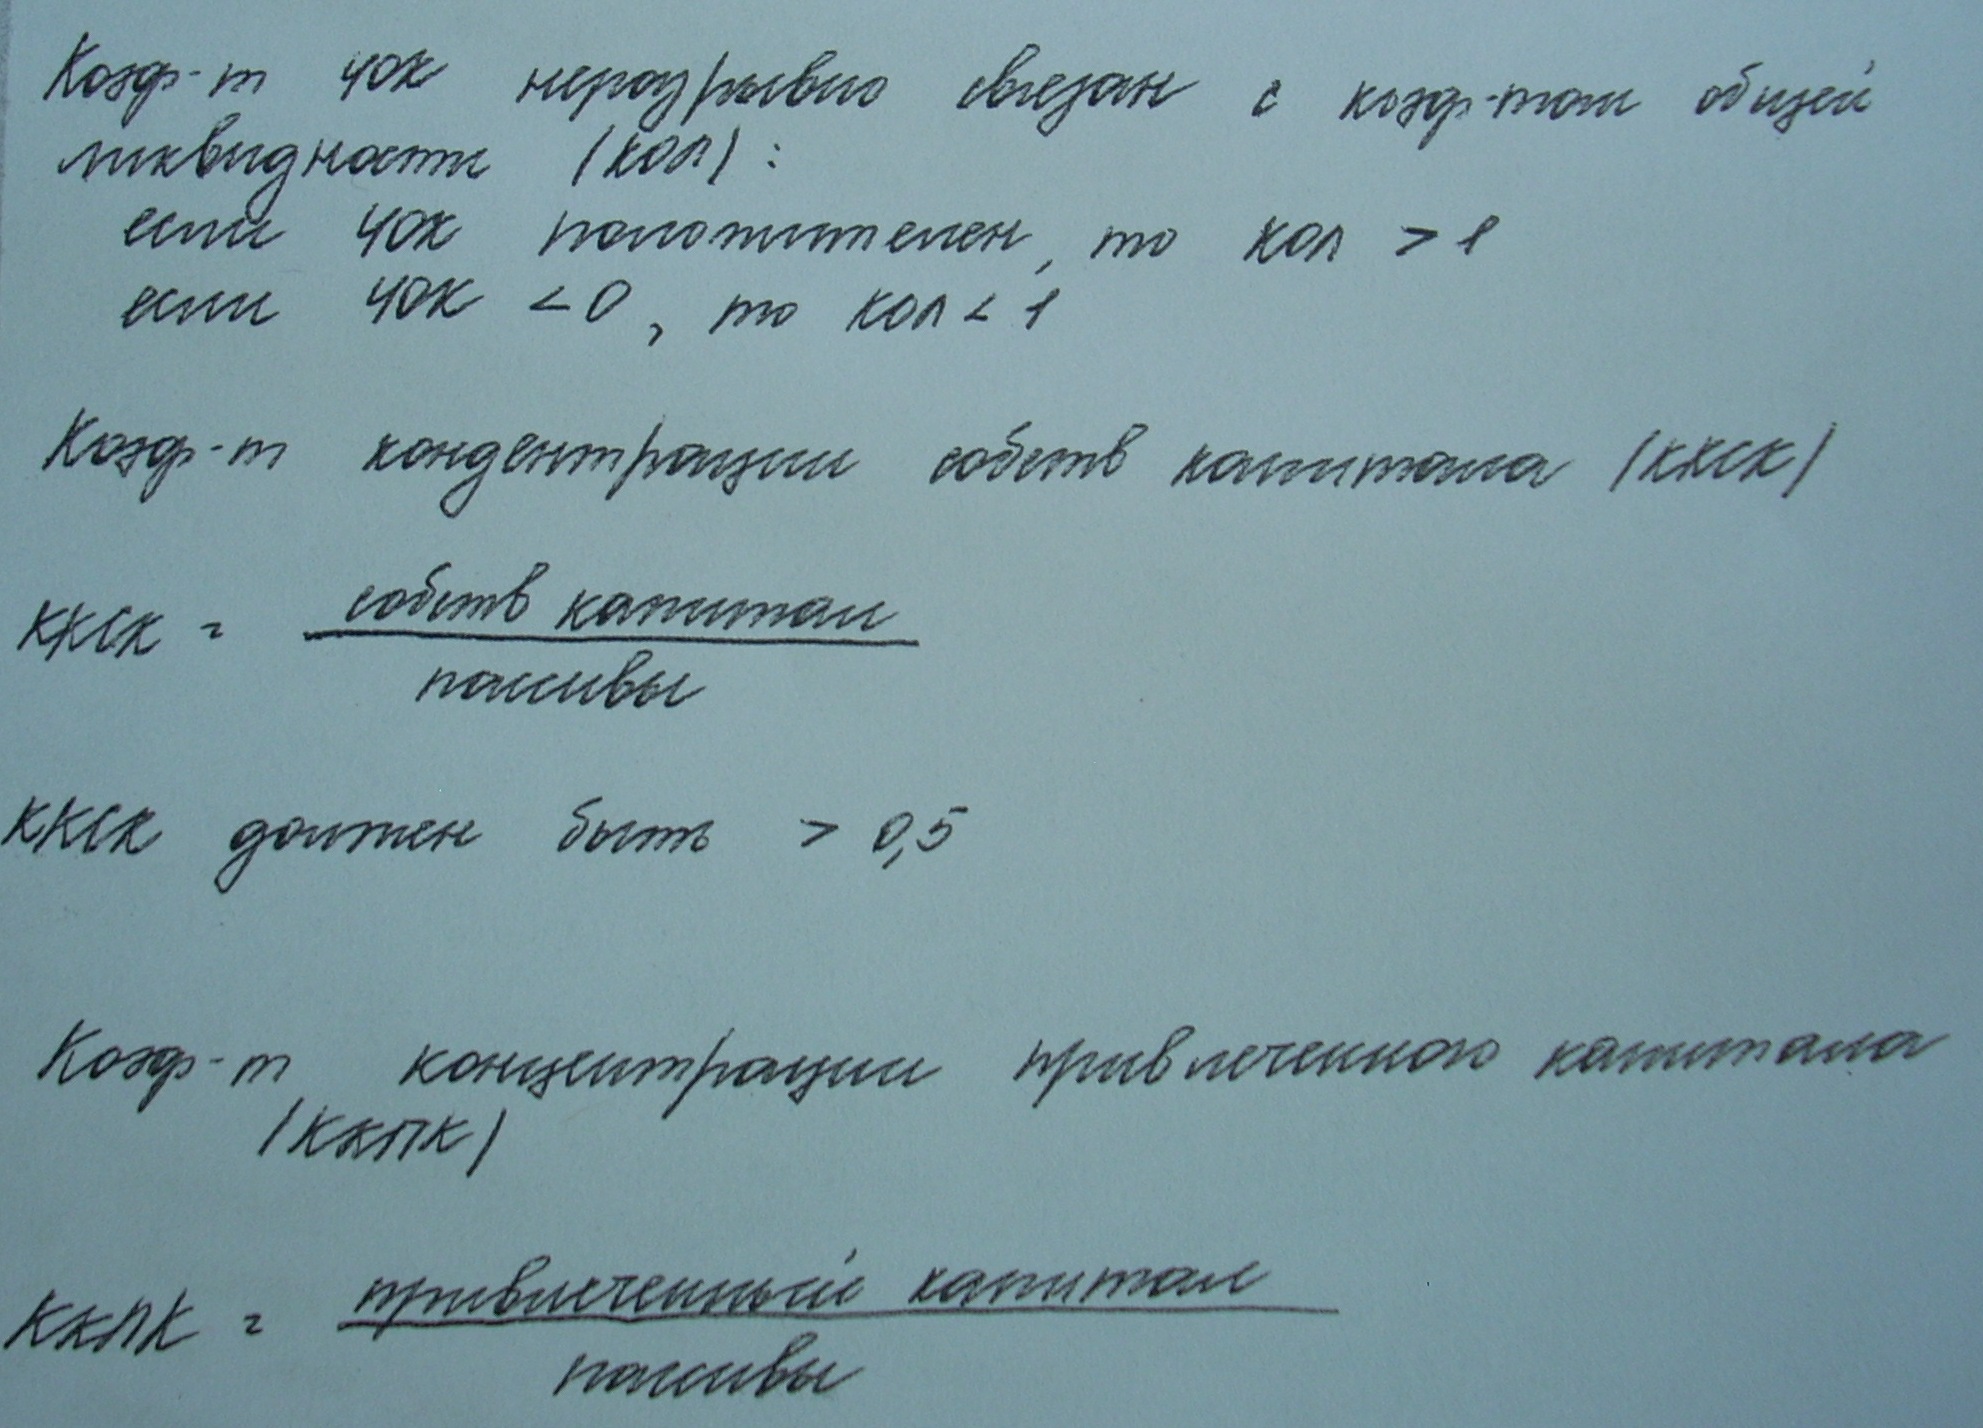 Коэф-т ЧОК неразрывно связан с коэф-том общей
ликвидности (КОЛ):
если ЧОК положителен, то КОЛ > 1
если ЧОК < 0, то КОЛ < 1
Коэф-т кондентрации собств капитала (ККСК)
ККСК = собств капитал
пассивы
ККСК должен быть > 0,5
Коэф-т концентрации привлеченного капитала
(ККПК)
ККПК = привлеченный капитал
пассивы